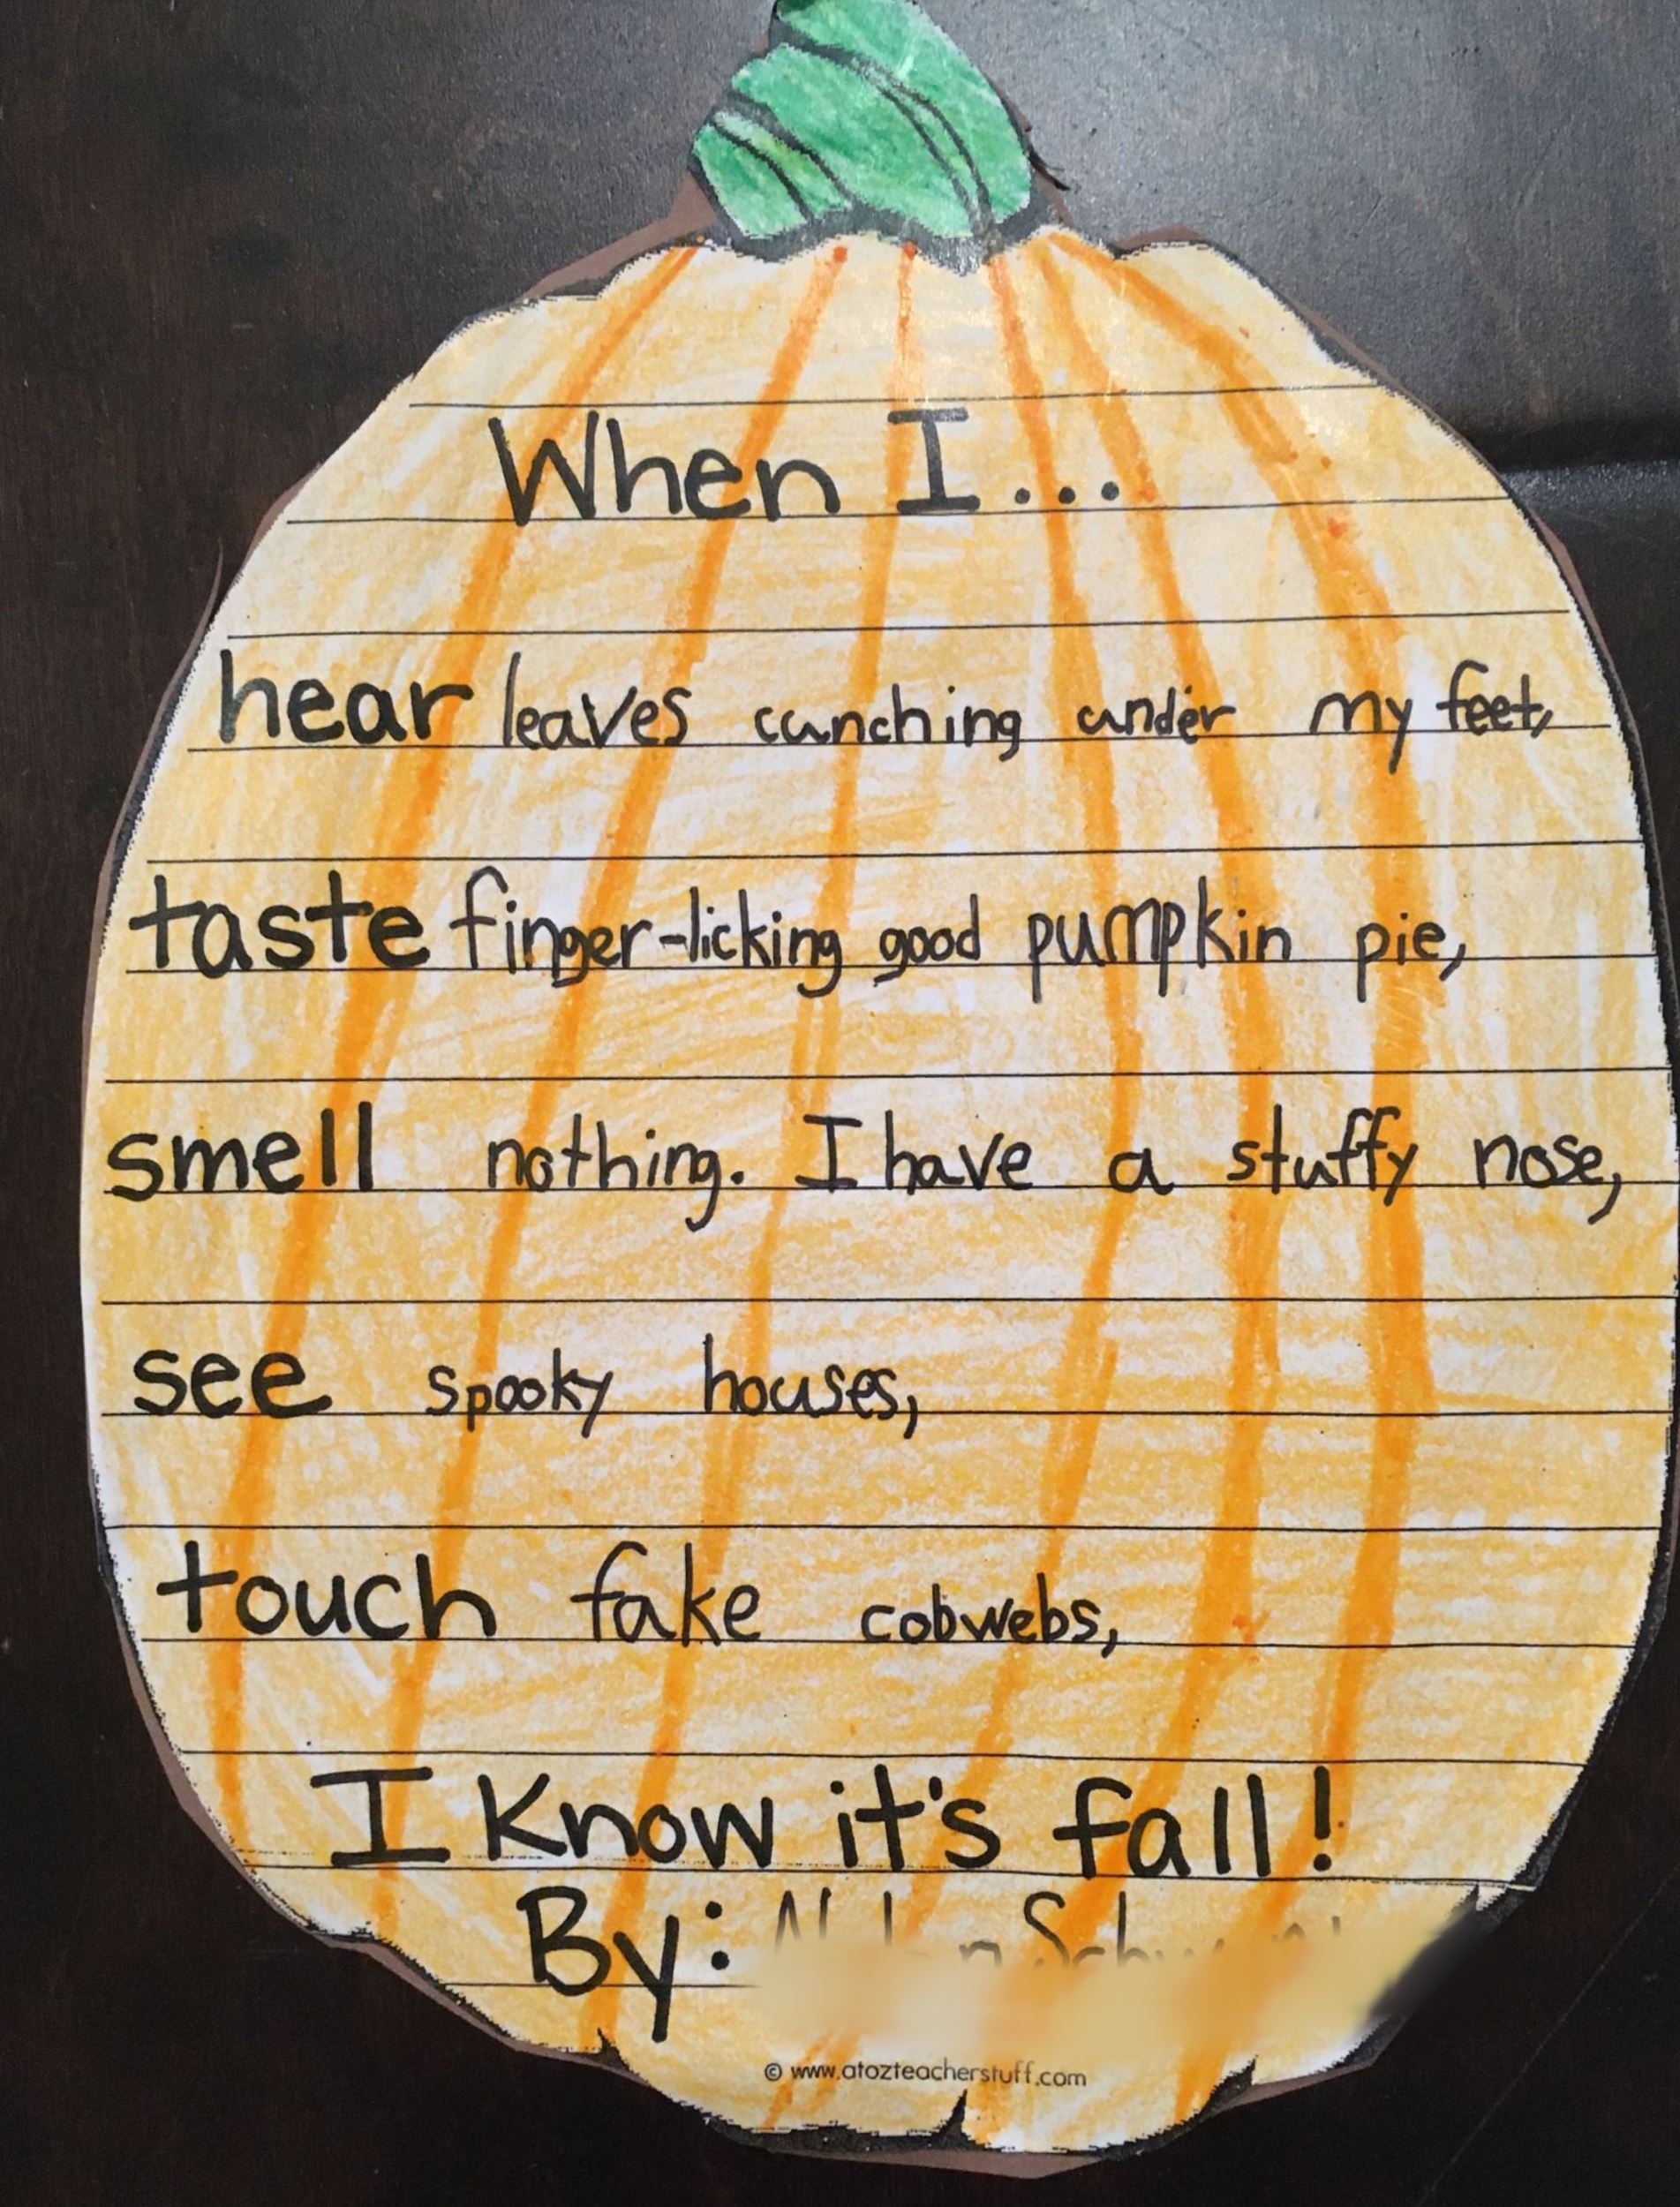 When I...
hear leaves cunching under my feet,
taste finger-licking good pumpkin pie,
smell nothing. I have a stuffy nose,
see spooky houses,
touch fake cobwebs,
I know it's fall!
By:
© www.atozteacherstuff.com